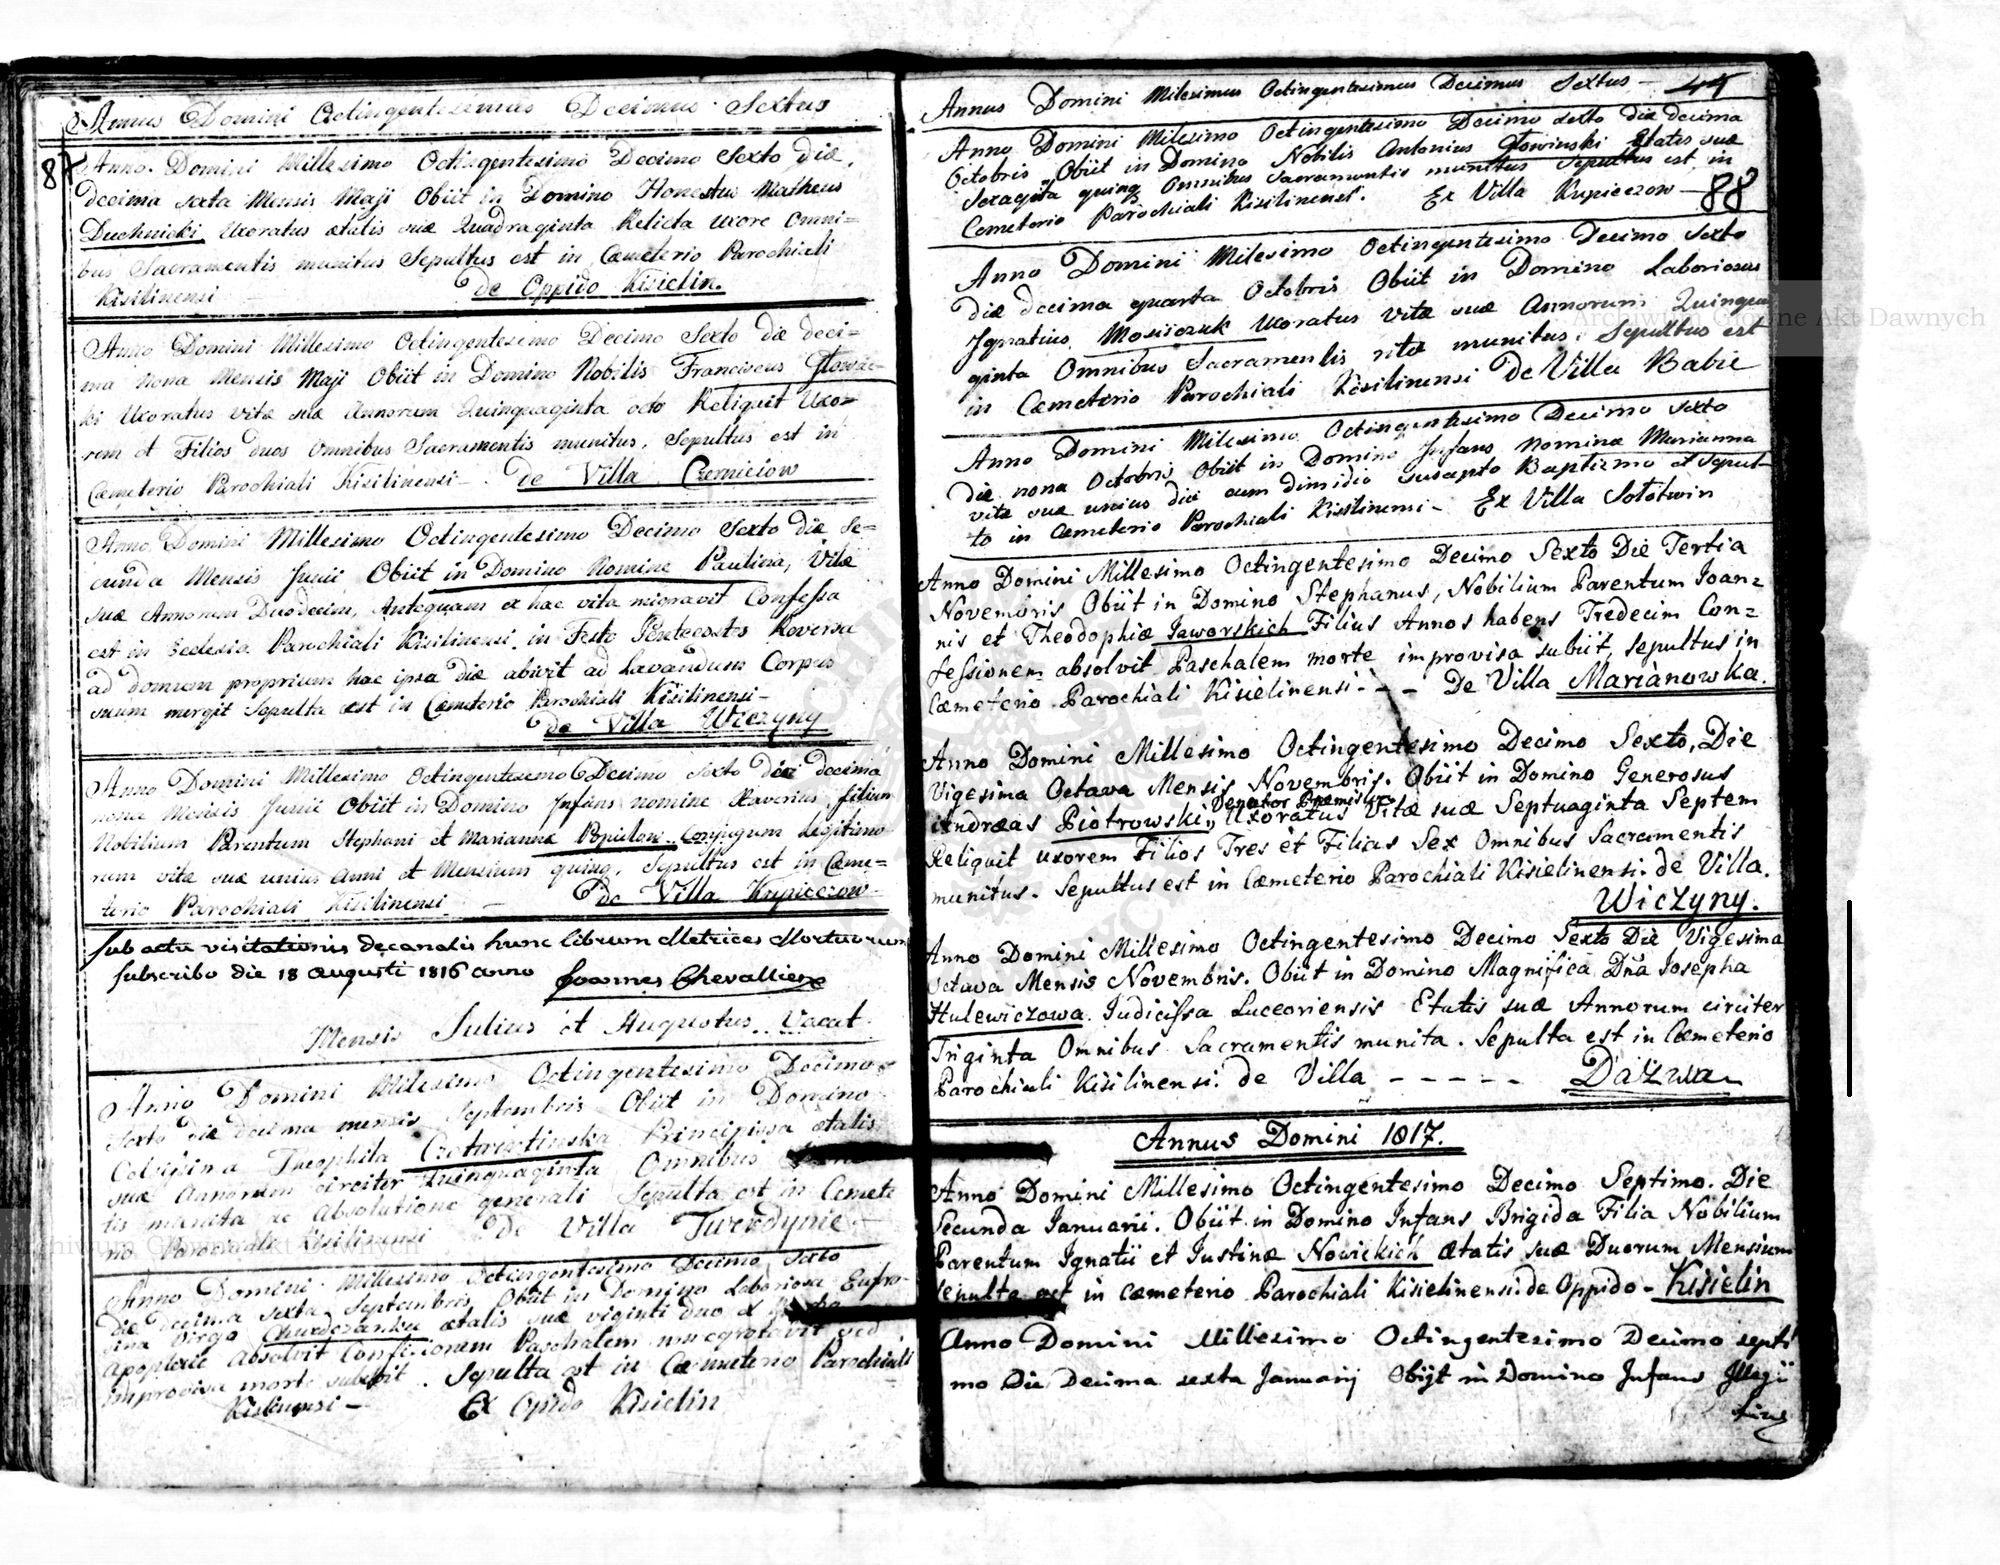 Annus Domini Octingentesimus Decimus Sextus
87
Anno Domini Millesimo Octingentesimo Decimo Sexto die
decima sexta Mensis Maji Obiit in Domino Honestus Matheus
Duchnicki Uxoratus ætatis suæ Quadraginta Relicta Uxore Omni=
bus Sacramentis munitus Sepultus est in Cæmeterio Parochiali
Kisilinensi de Oppido Kisielin.
Anno Domini Millesimo Octingentesimo Decimo Sexto die deci=
ma nona Mensis Maji Obiit in Domino Nobilis Franciscus Głowac=
ki Uxoratus Vitæ suæ Annorum Quinquaginta octo Reliquit Uxo=
rem et Filios duos Omnibus Sacramentis munitus. Sepultus est in
Cæmeterio Parochiali Kisilinensi - de Villa Czerniciow
Anno Domini Millesimo Octingentesimo Decimo Sexto die Se=
cunda Mensis Junii Obiit in Domino Nomine Paulina, Vitæ
suæ Annorum Duodecim, Antequam ex hac vita migravit Confessa
est in Ecclesia Parochiali Kisilinensi in Festo Pentecostes Reversa
ad domum propriam hac ipsa die abivit ad lavandum Corpus
suum mergit Sepulta est in Cæmeterio Parochiali Kisilinensi -
de Villa Wiczyny
Anno Domini Millesimo Octingentesimo Decimo Sexto die decima
nona Mensis Junii Obiit in Domino Infans nomine Xaverius filius
Nobilium Parentum Stephani et Mariannæ Conjugum legitimo
rum vitæ suæ unius anni et Mensium quinq, Sepultus est in Cæme=
terio Parochiali Kisilinensi - de Villa Krypieczow -
Sub actu visitationis decanalis hunc librum Metrices Mortuorum
subscribo die 18 augusti 1816 anno Joannes Chevallier
Mensis Julius et Augustus Vacat.
Anno Domini Milesimo Octingentesimo Decimo
Sexto die decima mensis Septembris Obiit in Domino
Celsissima Theophila Czetwertinska Principissa ætatis
suæ Annorum circiter Quinquaginta Omnibus
tis munita ac Absolutione generali Sepulta est in Cemete
rio Parochiali Kisilinensi De Villa Twerdynie
Anno Domini Millesimo Octingentesimo Decimo Sexto
die decima sexta Septembris Obiit in Domino Laboriosa Eufro-
sina Virgo ætatis suæ viginti duo
Apoplexie Absolvit Confessionem Paschalem
improvisa morte subivit. Sepulta est in Cæmeterio Parochiali
Kisilinensi - Ex Opido Kisielin
Annus Domini Milesimus Octingentesimus Decimus Sextus - 44
Anno Domini Milesimo Octingentesimo Decimo sexto die decima
Octobris Obiit in Domino Nobilis Antonius Głowinski Etatis suæ
Sexaginta quinq Omnibus Sacramentis munitus Sepultus est in
Cemeterio Parochiali Kisilinensi. Ex Villa Krypieczow - 88
Anno Domini Milesimo Octingentesimo Decimo Sexto
die decima quarta Octobris Obiit in Domino Laboriosus
Ignatius Mosiiczuk Uxoratus Vitæ suæ Annorum Quinqua
ginta Omnibus Sacramentis rite munitus. Sepultus est
in Cæmeterio Parochiali Kisilinensi De Villa Babie
Anno Domini Milesimo Octingentesimo Decimo sexto
die nona Octobris Obiit in Domino Infans Nomine Marianna
vitæ suæ unius die cum dimidio suscepto Baptismo et Sepul-
ta in Cæmeterio Parochiali Kisilinensi - Ex Villa Sołotwin
Anno Domini Millesimo Octingentesimo Decimo Sexto Die Tertia
Novembris Obiit in Domino Stephanus, Nobilium Parentum Joan=
nis et Theodophiæ Jaworskich Filius Annos habens Tredecim Con=
fessionem absolvit Paschalem morte improvisa subiit, sepultus in
Cæmeterio Parochiali Kisielinensi - - - De Villa Marianowka.
Anno Domini Millesimo Octingentesimo Decimo Sexto, Die
Vigesima Octava Mensis Novembris. Obiit in Domino Generosus
Venator
Andræas Piotrowski, Uxoratus Vitæ suæ Septuaginta Septem
Reliquit uxorem Filios Tres et Filias Sex Omnibus Sacramentis
munitus. Sepultus est in Cæmeterio Parochiali Kisielinensi. de Villa.
Wiczyny.
Anno Domini Millesimo Octingentesimo Decimo Sexto Die Vigesima
Octava Mensis Novembris. Obiit in Domino Magnifica Dña Josepha
Hulewiczowa Judicissa Luceoriensis Etatis suæ Annorum circiter
Triginta Omnibus Sacramentis munita. Sepulta est in Cæmeterio
Parochiali Kisilinensi. de Villa - - - - - Dażwa
Annus Domini 1817.
Anno Domini Millesimo Octingentesimo Decimo Septimo. Die
Secunda Januarii. Obiit in Domino Infans Brigida Filia Nobilium
Parentum Ignatii et Justinæ Nowickich ætatis suæ Duorum Mensium
Sepulta est in cæmeterio Parochiali Kisielinensi. de Oppido - Kisielin
Anno Domini Millesimo Octingentesimo Decimo septi
mo Die Decima sexta Januarij Obijt in Domino Infans Illegi
time
Archiwum Główne Akt Dawnych
Archiwum Główne Akt Dawnych